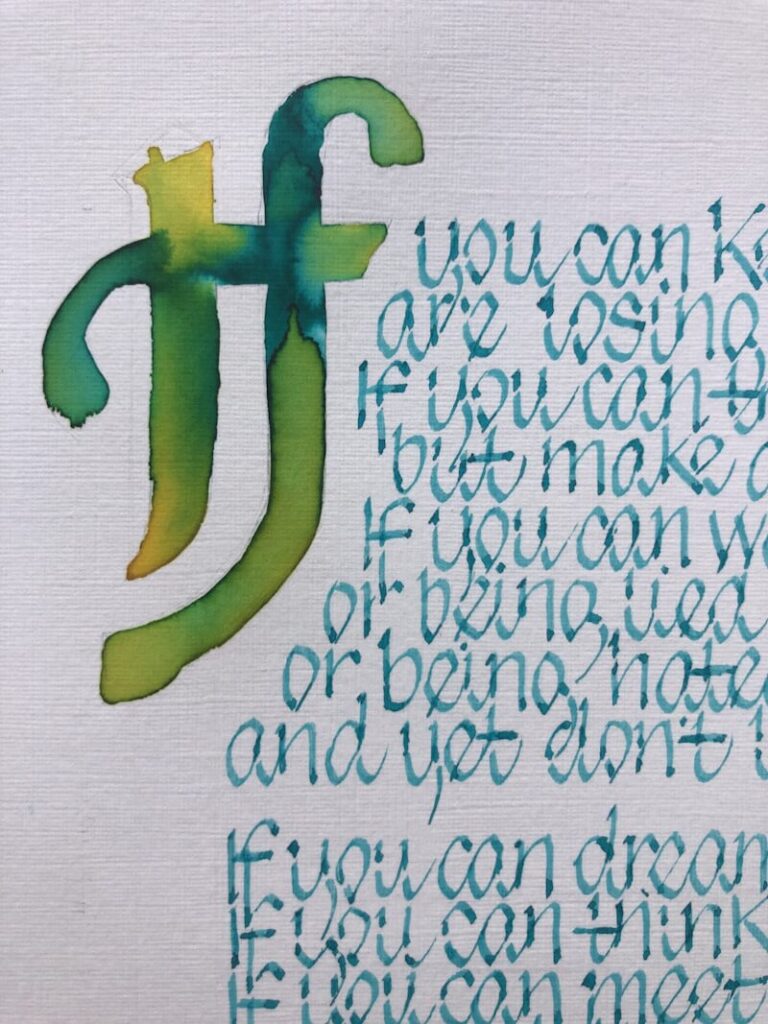 If you can ke
are losing
If you can th
but make a
If you can wa
or being lied
or being hate
and yet don't
If you can dream
If you can think
If you can meet